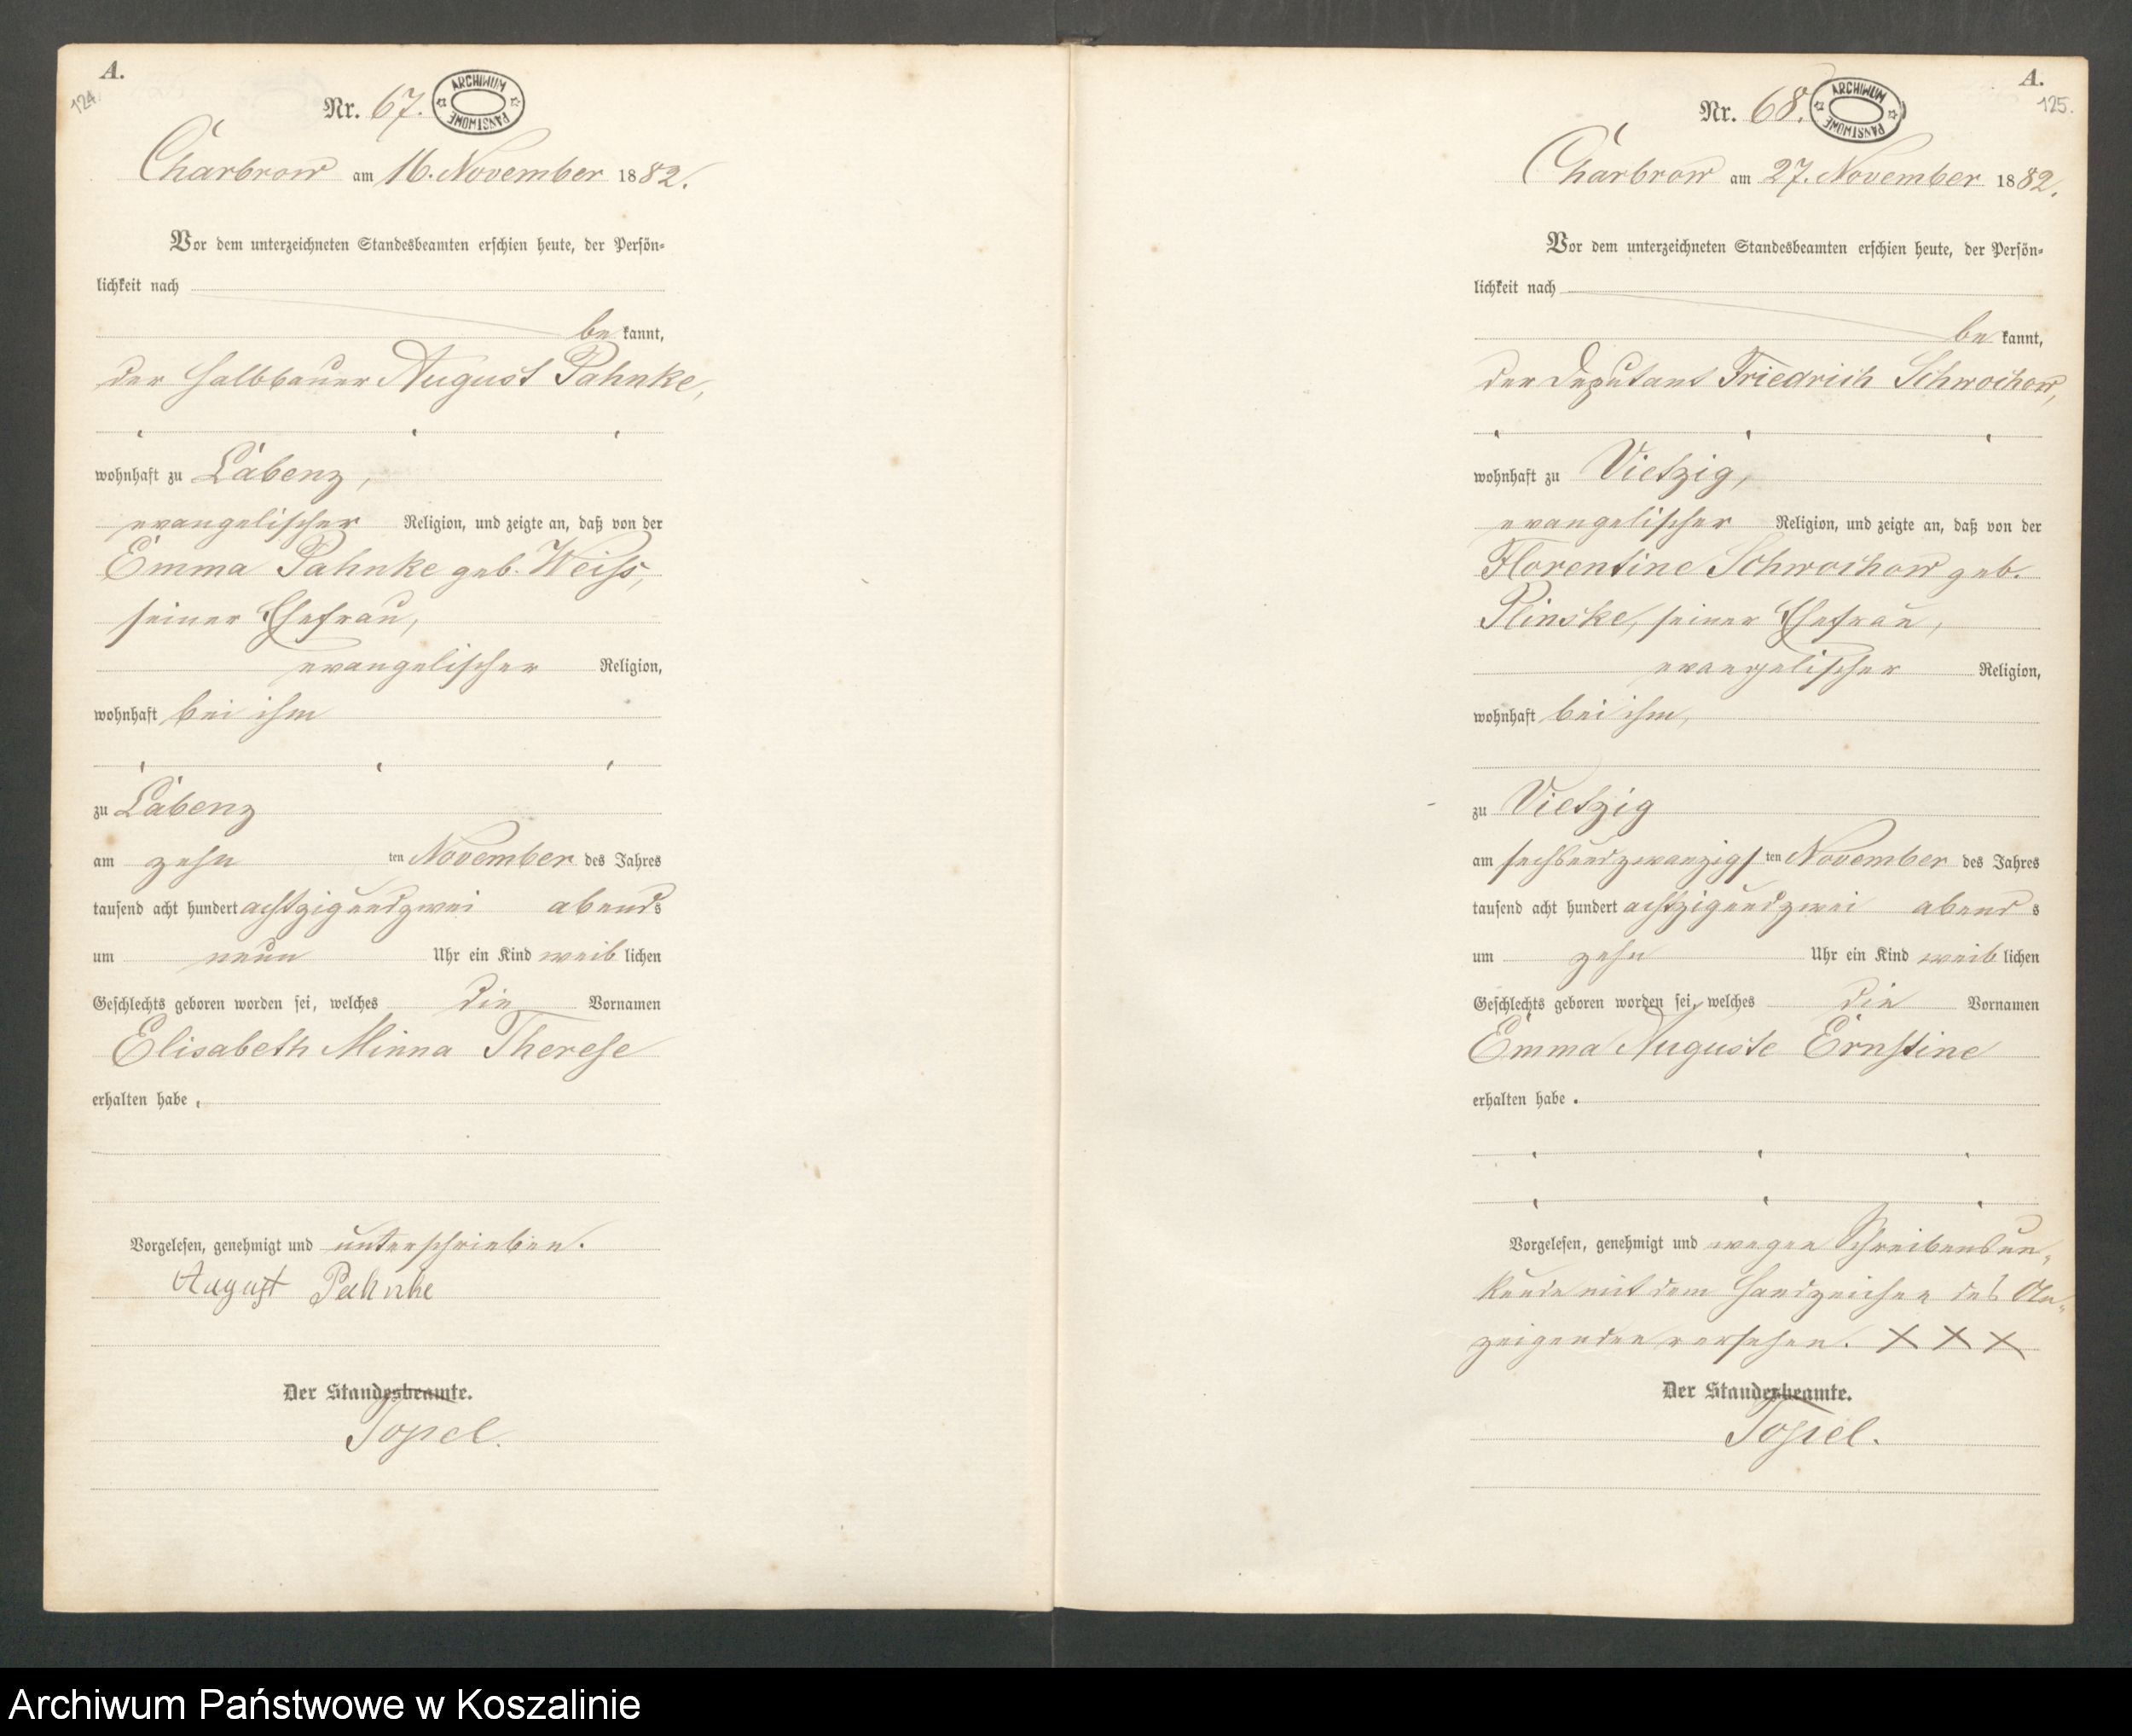 A.
124.
Nr. 67.
ARCHIWUM PAŃSTWOWE
Charbrow am 16. November 1882.
Vor dem unterzeichneten Standesbeamten erschien heute, der Persön-
lichkeit nach
be kannt,
der Halbbauer August Pahnke,
wohnhaft zu Labenz,
evangelischer Religion, und zeigte an, daß von der
Emma Pahnke geb. Weiss,
seiner Ehefrau,
evangelischer Religion,
wohnhaft bei ihm
zu Labenz
am zehn ten November des Jahres
tausend acht hundert achtzigundzwei abends
um neun Uhr ein Kind weib lichen
Geschlechts geboren worden sei, welches die Vornamen
Elisabeth Minna Therese
erhalten habe.
Vorgelesen, genehmigt und unterschrieben.
August Pahnke
Der Standesbeamte.
Topel.
A.
125.
Nr. 68.
ARCHIWUM PAŃSTWOWE
Charbrow am 27. November 1882.
Vor dem unterzeichneten Standesbeamten erschien heute, der Persön-
lichkeit nach
be kannt,
der Deputant Friedrich Schwochow,
wohnhaft zu Vietzig,
evangelischer Religion, und zeigte an, daß von der
Florentine Schwochow geb.
Plinske, seiner Ehefrau,
evangelischer Religion,
wohnhaft bei ihm,
zu Vietzig
am sechsundzwanzigs ten November des Jahres
tausend acht hundert achtzigundzwei abend s
um zehn Uhr ein Kind weib lichen
Geschlechts geboren worden sei, welches die Vornamen
Emma Auguste Ernstine
erhalten habe.
Vorgelesen, genehmigt und wegen Schreibensun-
kunde mit dem Handzeichen des An-
zeigenden versehen. X X X
Der Standesbeamte.
Topel.
Archiwum Państwowe w Koszalinie